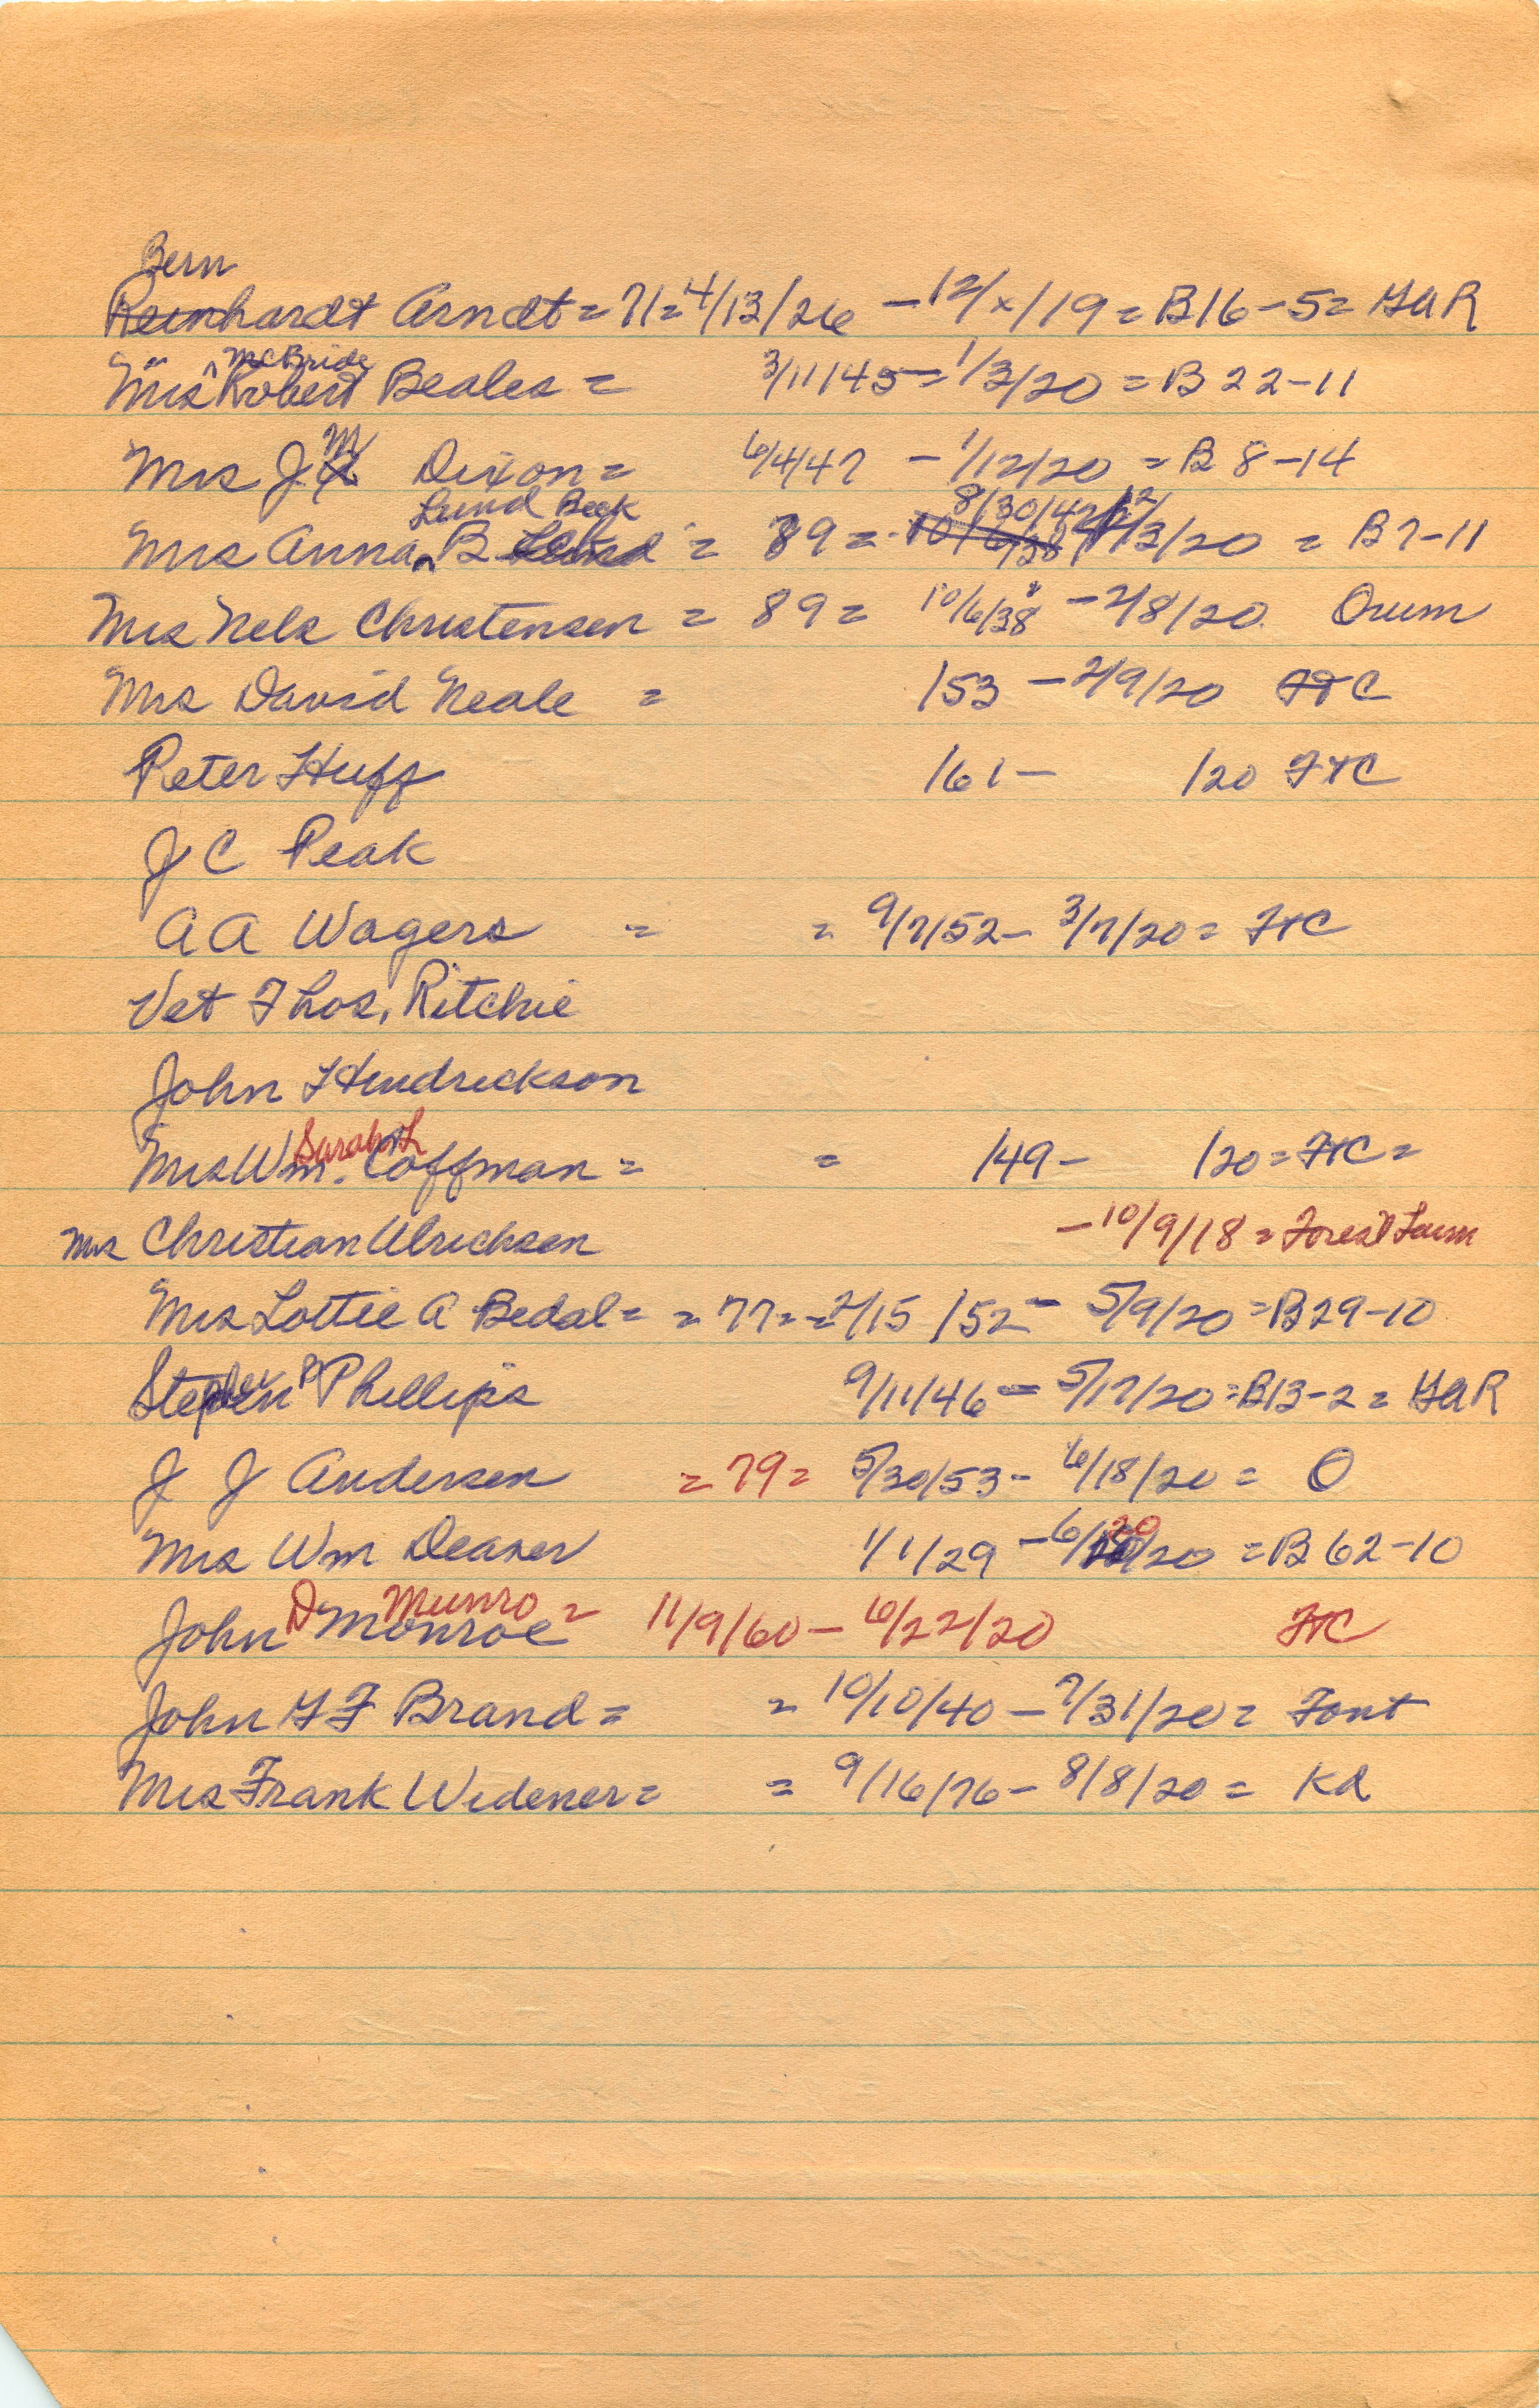 Bern
Reinhardt Arndt = 71 = 4/13/26 - 12/x/19 = B16-5 = GAR
McBride
Mrs Robert Beales = 3/11/45 = 1/3/20 = B 22-11
M
Mrs J Dixon = 6/4/47 - 1/12/20 = B 8-14
Lund Beck 8/30/42 12/
Mrs Anna B Lund = 89 = 10/6/38 /3/20 = B7-11
Mrs Nels Christensen = 89 = 10/6/38 - 2/8/20 Orum
Mrs David Neale = 153 - 2/9/20 FTC
Peter Huff 161 - 120 FTC
J C Peak
A A Wagers = = 9/7/52 - 3/7/20 = FTC
Vet Thos. Ritchie
John Hendrickson
Sarah L
Mrs Wm. Coffman = = 149 - 120 = FTC =
Mrs Christian Ulrichsen - 10/9/18 = Forest Lawn
Mrs Lottie A Bedal = = 77 = = 2/15/52 - 5/9/20 = B29-10
Stephen P Phillips 9/11/46 - 5/17/20 = B13-2 = GAR
J J Andersen = 79 = 5/30/53 - 6/18/20 = O
20
Mrs Wm Deaver 1/1/29 - 6/ /20 = B 62-10
D Munro
John Monroe = 11/9/60 - 6/22/20 FTC
John G F Brand = = 10/10/40 - 7/31/20 = Font
Mrs Frank Widener = = 9/16/76 - 8/8/20 = Kd